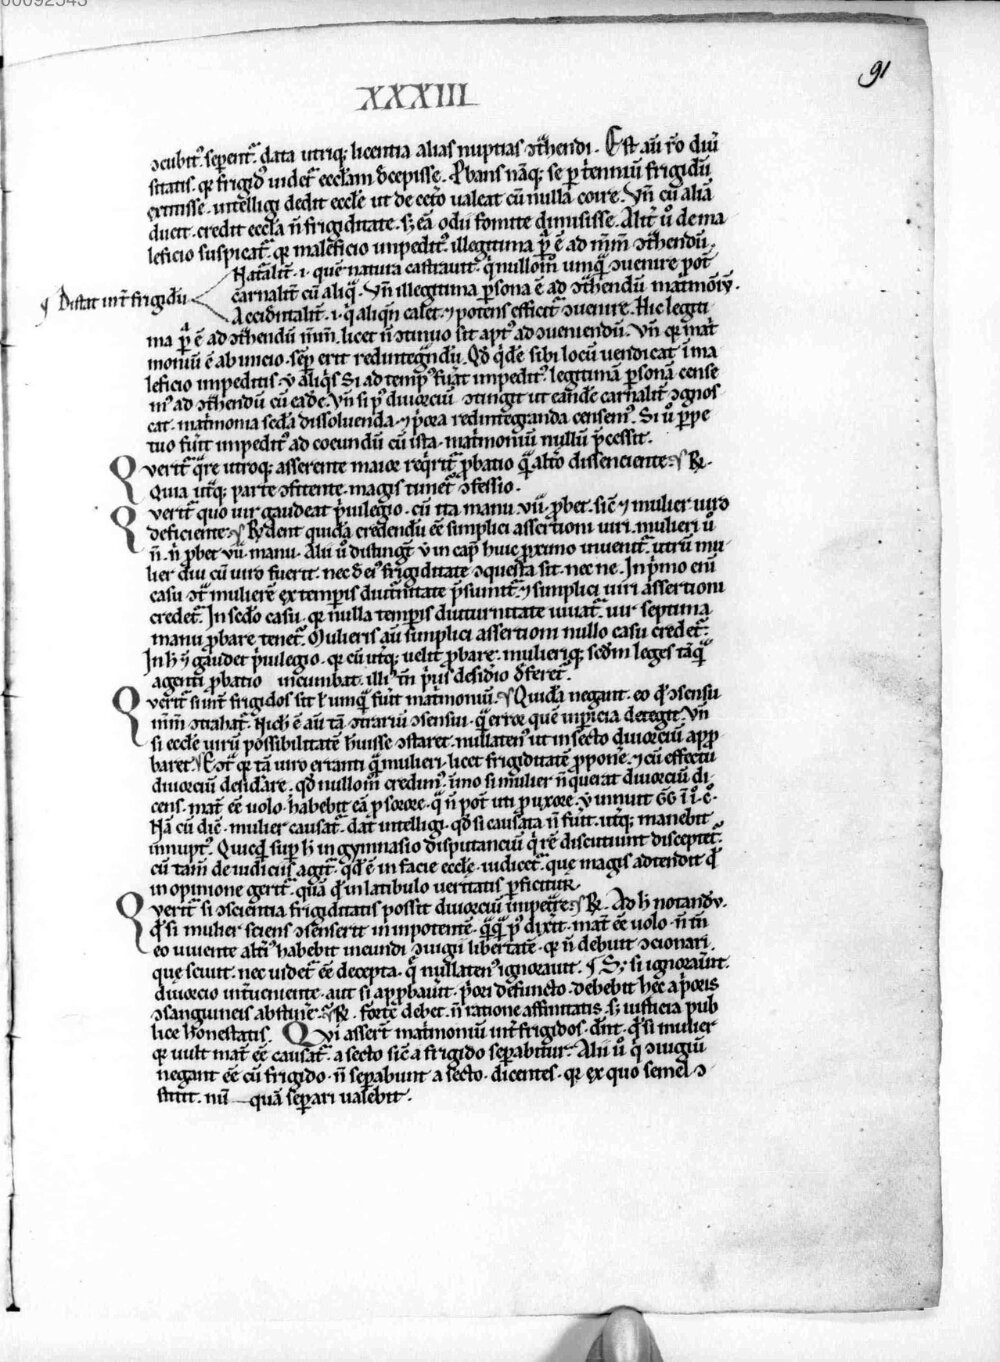 00092543
91
XXXIII
ɔcubit᷑ sepent᷑ data utriq; licentia alias nuptias ɔt̃hendi. Est au᷑ r̃o diu᷑
sitatis. qr frigid᷒ uidet᷑ ecclam decepisse. Pbans nãq; se p triennium frigidũ
extitisse. intelligi dedit eccle ut de cet̃o ualeat cũ nulla coire. Vñ cũ aliã
ducit. credit eccla ñ frigiditate. s; eã odii fomite dimisisse. Alit᷑ ů de ma
leficio suspicat᷑. qr maleficio impedit᷒ illegitima p̃ ẽ ad m̃m ɔt̃hendũ.
Nat᷑alit᷑. i. quẽ natura castrauit. q̇ nullom̃ umq̃ ɔuenire pot̃
¶ Distit int᷑ frigidũ
carnalit᷑ cũ aliq̃. Vñ illegitima p̃sona ẽ ad ɔt̃hendũ matimõiũ.
Accidentalit᷑. i. q̇ aliqñ calet. ⁊ potens efficit᷑ ɔuenire. Hic legiti
ma p̃ ẽ ad ɔt̃hendũ m̃m. licet ñ ɔtinuo sit apt᷒ ad ɔueniendũ. Vñ qr mat̃
moniũ ẽ ab inicio. semp erit redintegrandũ. Qd̃ q̇dẽ sibi locũ uendicat ĩ ma
leficio impeditis. ů aliq̇s Si ad temp᷒ fuãt impedit᷒. legitimã p̃sonã cense
m᷒ ad ɔt̃hendũ cũ eadẽ. Vñ si p᷒ diuorciũ ɔtingit ut eandẽ carnalit᷑ ɔgnos
cat. matimonia sed̃a dissoluenda. ⁊ p̃ora redintegranda censem᷒. Si ů p̃pe
tuo fuit impedit᷒ ad coeundũ cũ ista. matimoniũ nullũ p̃cessit.
Querit᷑ q̃re utroq; asserente maior req̇rit᷑ p̃batio q̃ alt̃o dissenciente. ⁊ R̃.
Quia ut̃q; parte ɔfitente. magis timet᷑ ɔfessio.
Querit᷑ quo uir gaudeat p̃uilegio. cũ ita manu. vii. p̃bet. sic̃ ⁊ mulier uiro
deficiente. R̃dent quidã credendũ eẽ simplici assertioni uiri. mulieri ů
ñ. n̓ p̃bet vii. manu. Alii ů distingũt ů in cap̃ huic proximo inuenit᷑. utrũ mu
lier diu cũ uiro fuerit. nec de ei᷒ frigiditate ɔquesta sit. nec ne. In p̃mo eni
casu ɔt᷑ mulierẽ ex temp̃is diut᷑nitate p̃sumit᷑. ⁊ simplici uiri assertioni
credet᷑. In secdo casu. qr nulla temp̃is diuturnitate iuuat᷑. uir septima
manu p̃bare tenet᷑. Mulieris au᷑ simplici assertioni nullo casu credet᷑.
In h̃ ů gaudet p̃uilegio. qr cũ ut̃q; uelit p̃bare. mulieriq; secdm leges tãq̃
agenti p̃batio incumbat. illi᷒ tñ p̃us desid̃io defert᷑.
Querit᷑ si int᷑ frigidos sit ł umq̃ fuit matimoniũ. Quidã negant. eo qd̃ ɔsensu
m̃m ɔtrahat᷑. Nich̃ ẽ au᷑ tã ɔtrariũ ɔsensui. q̃ error quẽ inp̃icia detegit. Vñ
si eccle uirũ possibilitatẽ h̃uisse ɔstaret. nullaten᷒ ut in secto diuorciũ app̃
baret. Et᷑ qr tã uiro erranti q̃ mulieri. licet frigiditatẽ p̃ponẽ. ⁊ cũ effectu
diuorciũ desid̃are. qd̃ nullom̃ credim᷒. imo si mulier ñ querat diuorciũ di
cens. mat̃ eẽ uolo. habebit eã p sorore. q̃ ñ pot̃ uti p uxore.
Nã cũ dic̃. mulier causat᷑. dat᷑ intelligi. qd̃ si causata ñ fuit. ut̃q; manebit
innupt᷒. Quicq̃ sup h̃ in gymnasio disputanciũ q̇ rẽ discutiunt disceptet᷑.
cũ tam̃ de iudiciis agit᷑. qd̃ ẽ in facie eccle. iudicet᷑. que magis adtendit qd̃
in opinione gerit᷑. quã qd̃ in latibulo ueritatis p̃ficitur.
Querit᷑ si ɔscientia frigiditatis possit diuorciũ impetire. R̃. Ad h̃ notandũ.
qd̃ si mulier sciens ɔsenserit in inpotentẽ. q̃q̃ p᷒ dixit. mat̃ eẽ uolo. ñ tñ
eo uiuente alt̃i᷒ habebit ineundi ɔiugii libertatẽ. qr ñ debuit ɔcionari.
que sciuit. nec uidet᷑ eẽ decepta. q̃ nullaten᷒ ignorauit. ¶ S; si ignorauit.
diuorcio int᷑ueniente. aut si app̃bauit. p̃ori defuncto. debebit hec a p̃oris
ɔsanguineis abstinẽ. R̃. fortẽ debet. ñ ratione affinitatis. s; iusticia pub
lice honestatis. Qvi asserit matimoniũ int᷑ frigidos. dñt. qd̃ si mulier
qr uult mat̃ eẽ causat᷑. a secto sic̃ a frigido sepabitur. Alii ů q̇ ɔiugiũ
negant eẽ cũ frigido. ñ sepabunt a secto. dicentes. qr ex quo semel ɔ
stitit. nũ quã separi ualebit.